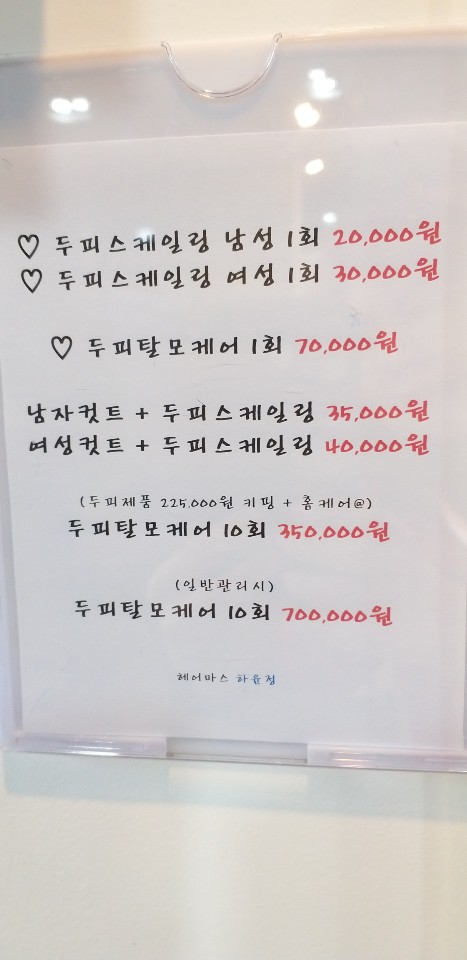 ♡ 두피스케일링 남성 1회 20,000원
♡ 두피스케일링 여성 1회 30,000원
♡ 두피탈모케어 1회 70,000원
남자컷트 + 두피스케일링 35,000원
여성컷트 + 두피스케일링 40,000원
(두피제품 225,000원 키핑 + 홈케어@)
두피탈모케어 10회 350,000원
(일반관리시)
두피탈모케어 10회 700,000원
헤어마스 하윤정